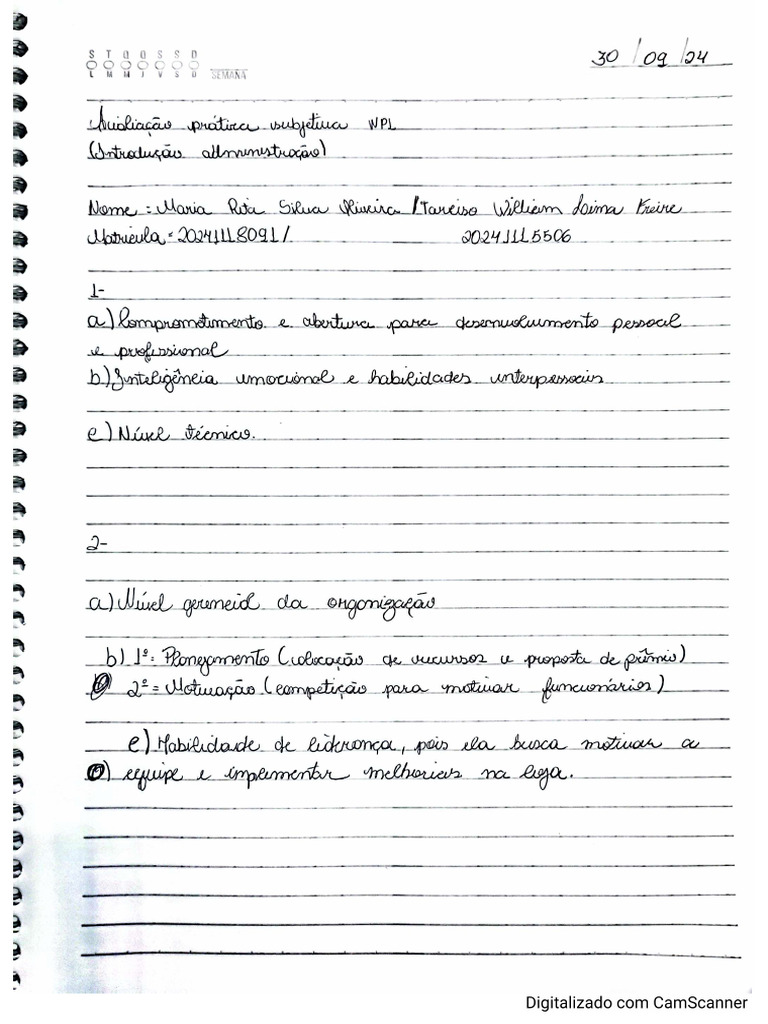 S T Q Q S S D
L M M J V S D SEMANA
30/09/24
Avaliação prática subjetiva WPL
(Introdução administração)
Nome: Maria Rita Silva Oliveira / Tarciso William Loima Freire
Matrícula = 20241118091/ 20241115506
1-
a) Comprometimento e abertura para desenvolvimento pessoal
e profissional
b) Inteligência emocional e habilidades interpessoais
c) Nível técnico.
2-
a) Nível gerencial da organização
b) 1º: Planejamento (colocação de recursos e proposta de prêmio)
2º = Motivação (competição para motivar funcionários)
c) Habilidade de liderança, pois ela busca motivar a
equipe e implementar melhorias na loja.
Digitalizado com CamScanner